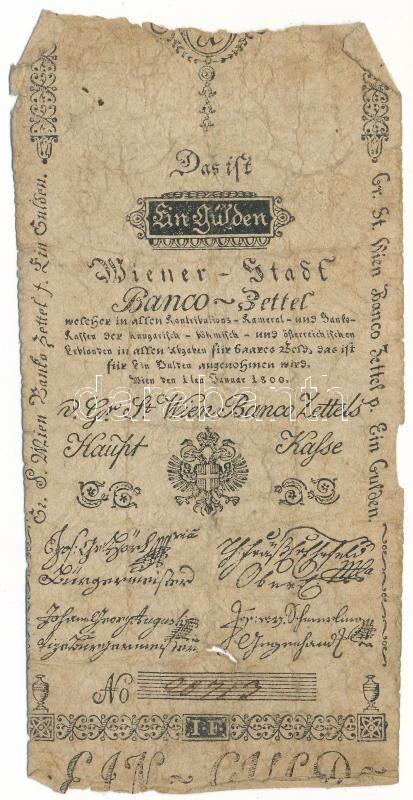 Das ist
Ein Gulden
Wiener-Stadt
Banco~Zettel
welcher in allen Kontributions-Kameral-und Banko-
Kassen der hungarisch-böhmisch-und österreichischen
Erblanden in allen Abgaben für baares Geld, das ist
für Ein Gulden angenohmen wird.
Wien den 1ten Januar 1800.
darabanth
v. Gr. St. Wien Banco Zettels
Haupt Kasse
Bürgermeister
Johann Georg Augusti
Vizebürgermeister
No
I F.
EIN~GULD
Gr. S. Wien Banko Zettel p. Ein Gulden.
Gr. St. Wien Banco Zettel p. Ein Gulden.